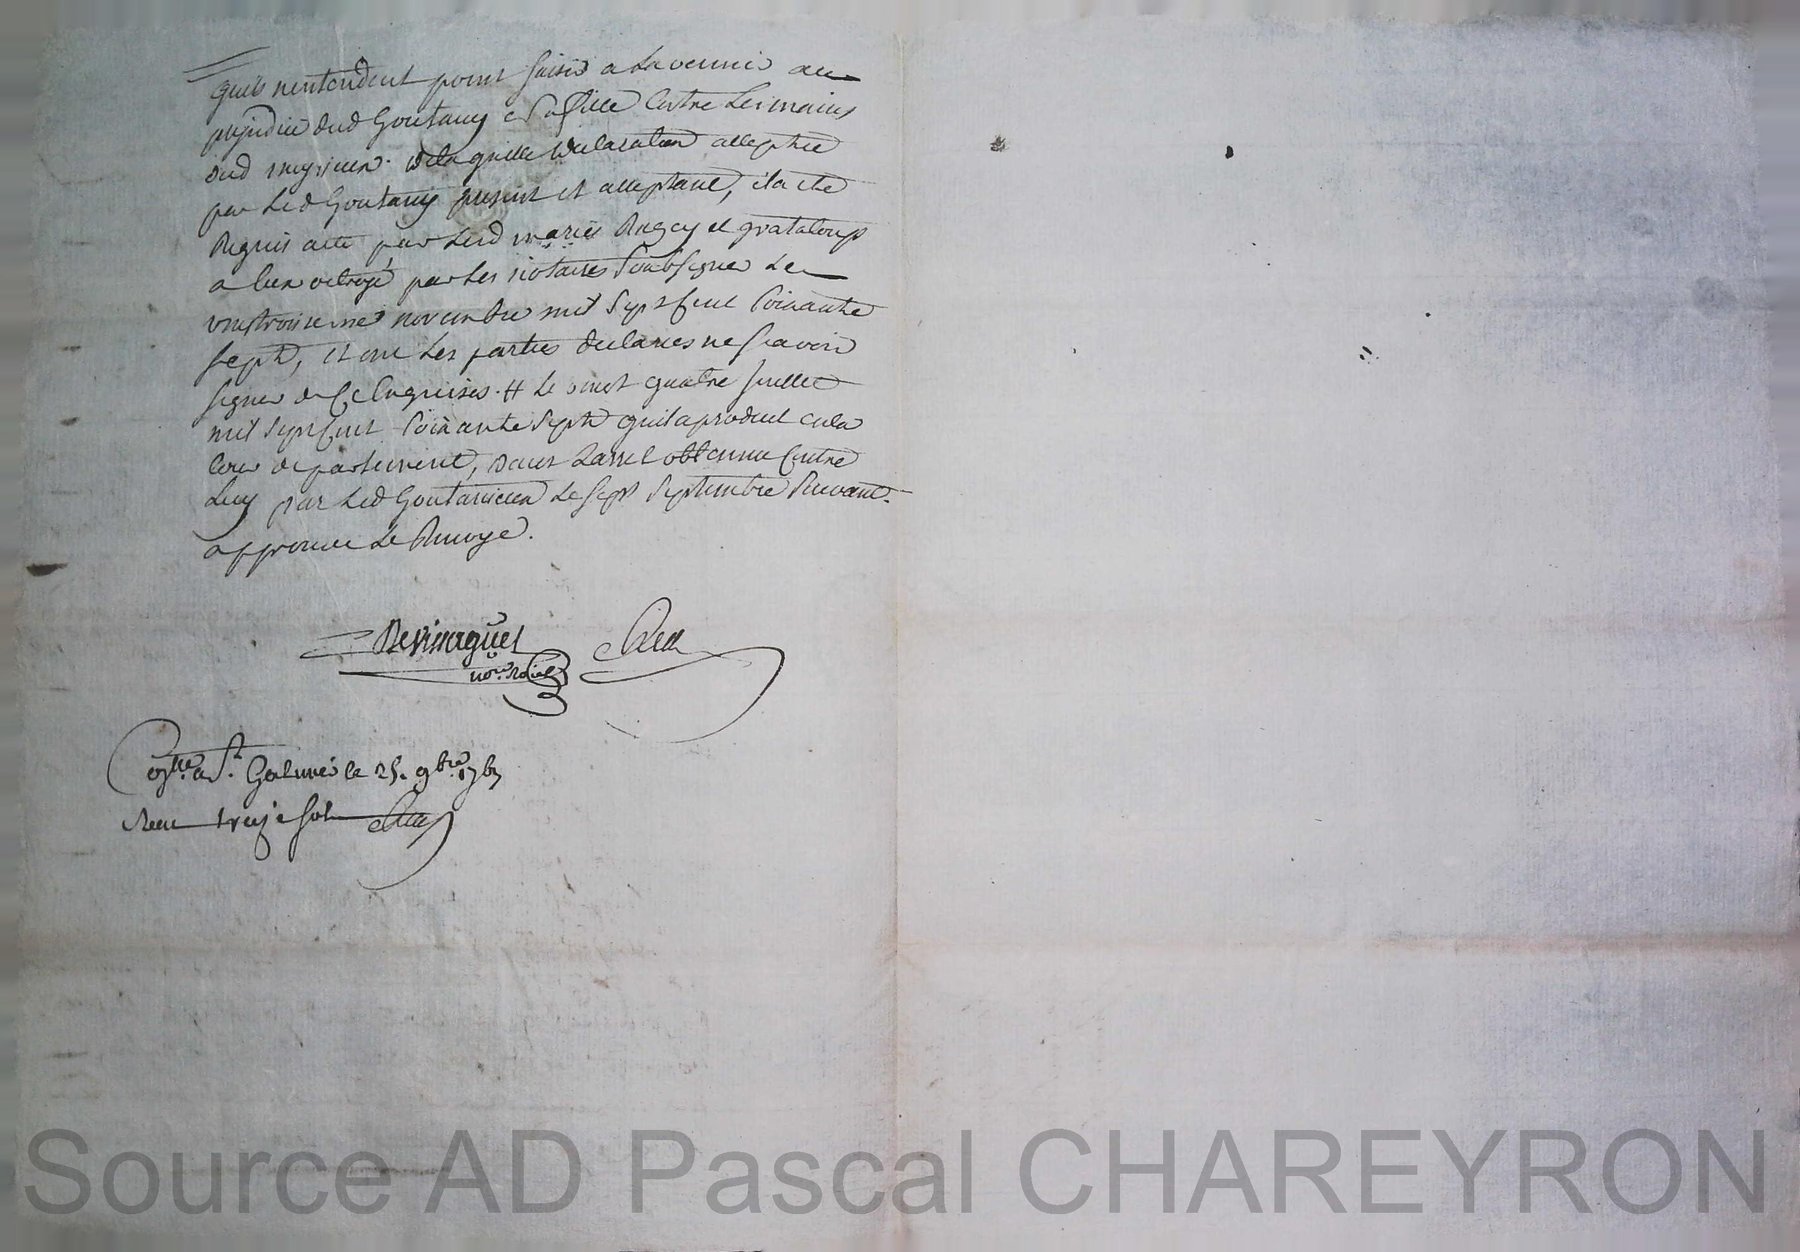 quils nentendent point faire a Lavenir au
prejudice dud Goutany et sa fille Entre Les mains
dud meyrieux. de laquelle declaration acceptee
par Led Goutany present et acceptant, il a ete
Requis acte par Lesd mariés Ragey et grataloup
a Eux octroyé par Les notaires Soubsignes Le
vingtroisieme novembre mil Sept Cent Soixante
Sept, et ont Les parties declarées ne Scavoir
signer de Ce Enquises. # Le vingt quatre juillet
mil Sept Cent Soixante Sept quil a produit en la
Cour de parlement, Sauf Larret obtenu Contre
Luy par Led Goutany Le Sept Septembre Suivant.
approuvé Le Renvoye.
nore Roial
Conlle a St. Galmier le 25. 9bre 1767
Recu treize sols
Source AD Pascal CHAREYRON